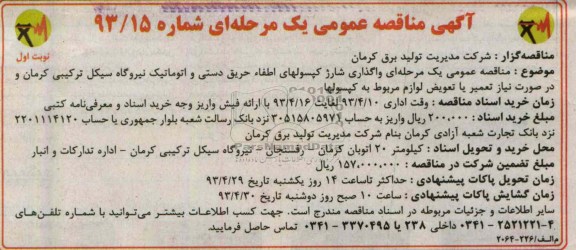 آگهی مناقصه عمومی یک مرحله‌ای شماره ۹۳/۱۵
نوبت اول
مناقصه‌گزار : شرکت مدیریت تولید برق کرمان
موضوع : مناقصه عمومی یک مرحله‌ای واگذاری شارژ کپسولهای اطفاء حریق دستی و اتوماتیک نیروگاه سیکل ترکیبی کرمان و
در صورت نیاز تعمیر یا تعویض لوازم مربوط به کپسولها
زمان خرید اسناد مناقصه : وقت اداری ۹۳/۴/۱۰ لغایت ۹۳/۴/۱۶ با ارائه فیش واریز وجه خرید اسناد و معرفی‌نامه کتبی
مبلغ خرید اسناد : ۲۰۰.۰۰۰ ریال واریز به حساب ۳۰۵۱۵۸۰۵۹۷۴ نزد بانک رسالت شعبه بلوار جمهوری یا حساب ۲۲۰۱۱۱۴۱۲۰
نزد بانک تجارت شعبه آزادی کرمان بنام شرکت مدیریت تولید برق کرمان
محل خرید و تحویل اسناد : کیلومتر ۲۰ اتوبان کرمان - رفسنجان - نیروگاه سیکل ترکیبی کرمان - اداره تدارکات و انبار
مبلغ تضمین شرکت در مناقصه : ۱۵۷.۰۰۰.۰۰۰ ریال
زمان تحویل پاکات پیشنهادی : حداکثر تا ساعت ۱۴ روز یکشنبه تاریخ ۹۳/۴/۲۹
زمان گشایش پاکات پیشنهادی : ساعت ۱۰ صبح روز دوشنبه تاریخ ۹۳/۴/۳۰
سایر اطلاعات و جزئیات مربوطه در اسناد مناقصه مندرج است. جهت کسب اطلاعات بیشتر می‌توانید با شماره تلفن‌های
۴-۲۵۲۱۲۲۱-۰۳۴۱ داخلی ۲۳۸ یا ۳۳۷۰۴۹۵-۰۳۴۱ تماس حاصل فرمایید.
م‌الف/۲۲۶-۲۰۶۴